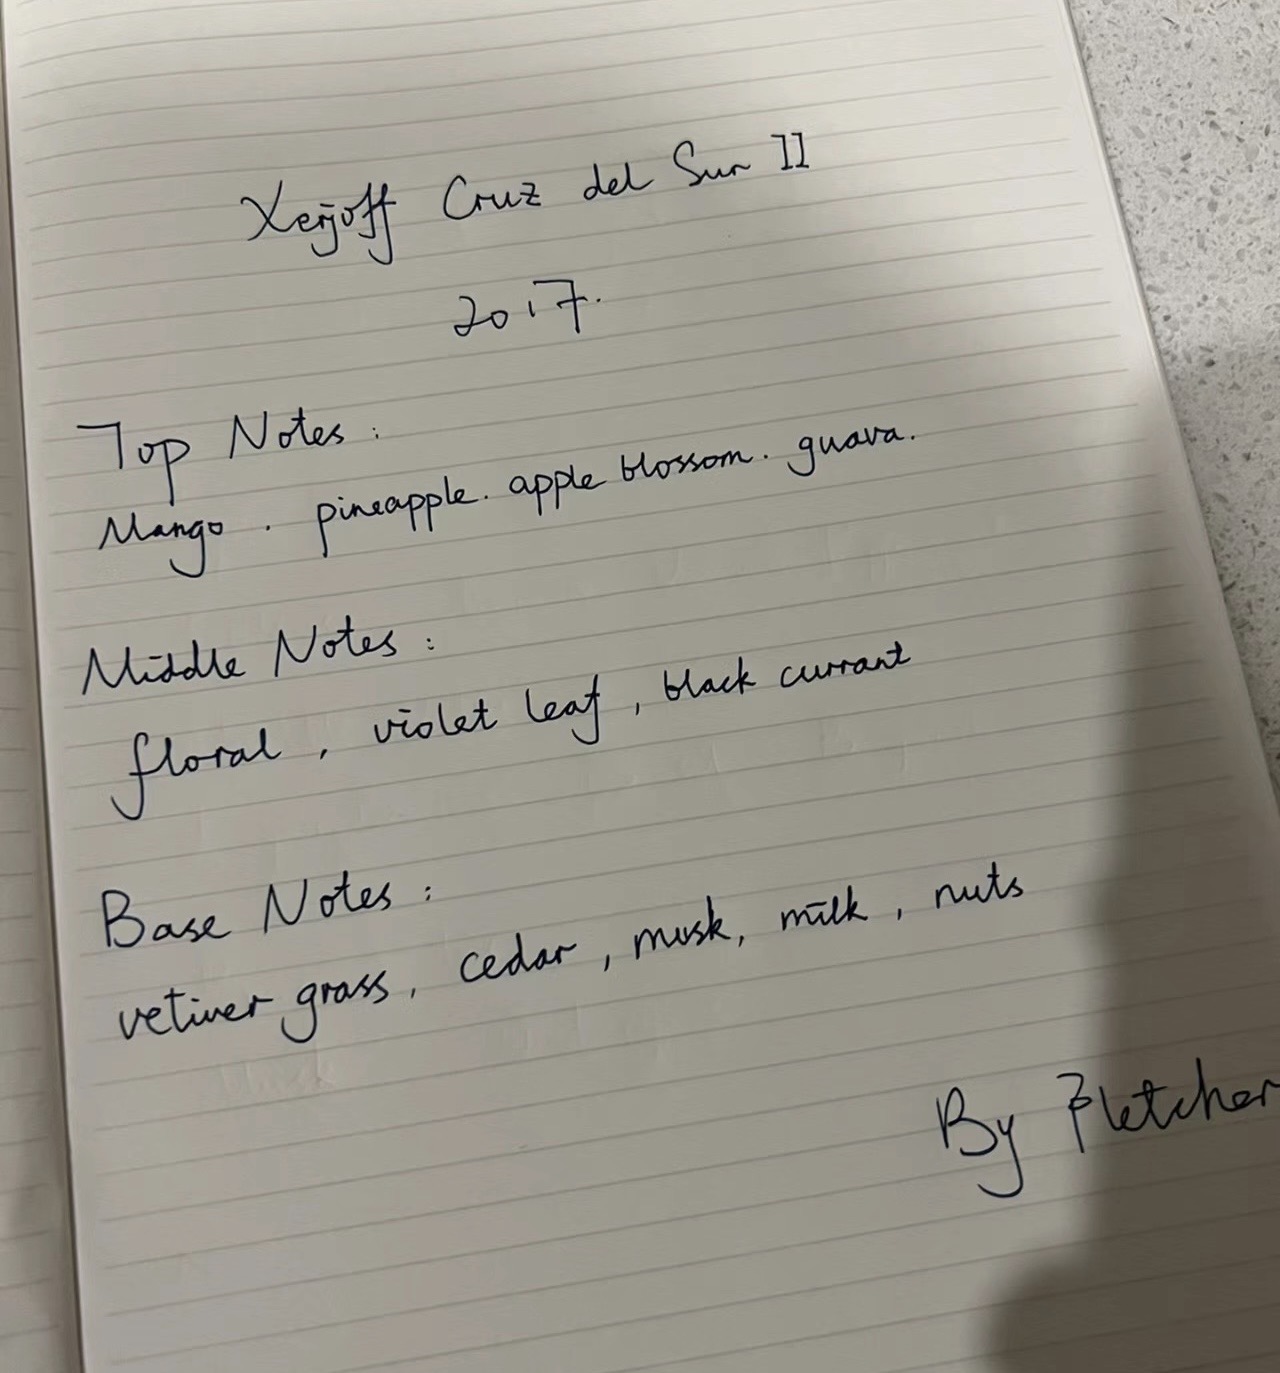 Xerjoff Cruz del Sur II
2017.
Top Notes :
Mango . pineapple. apple blossom. guava.
Middle Notes :
floral , violet leaf , black currant
Base Notes :
vetiver grass, cedar , musk, milk , nuts
By Fletcher